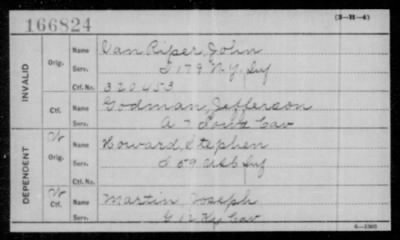 166824
(3-31-4)
INVALID
Orig.
Name Van Riper, John
Serv. I 179 N.Y. Inf
Ctf. No. 320453
Ctf.
Name Godman, Jefferson
Serv. A 7 Cav
DEPENDENT
Orig.
Name Howard, Stephen
Serv. I 59 Inf
Ctf. No.
Ctf.
Name Martin Joseph
Serv. G 12 Ky Cav